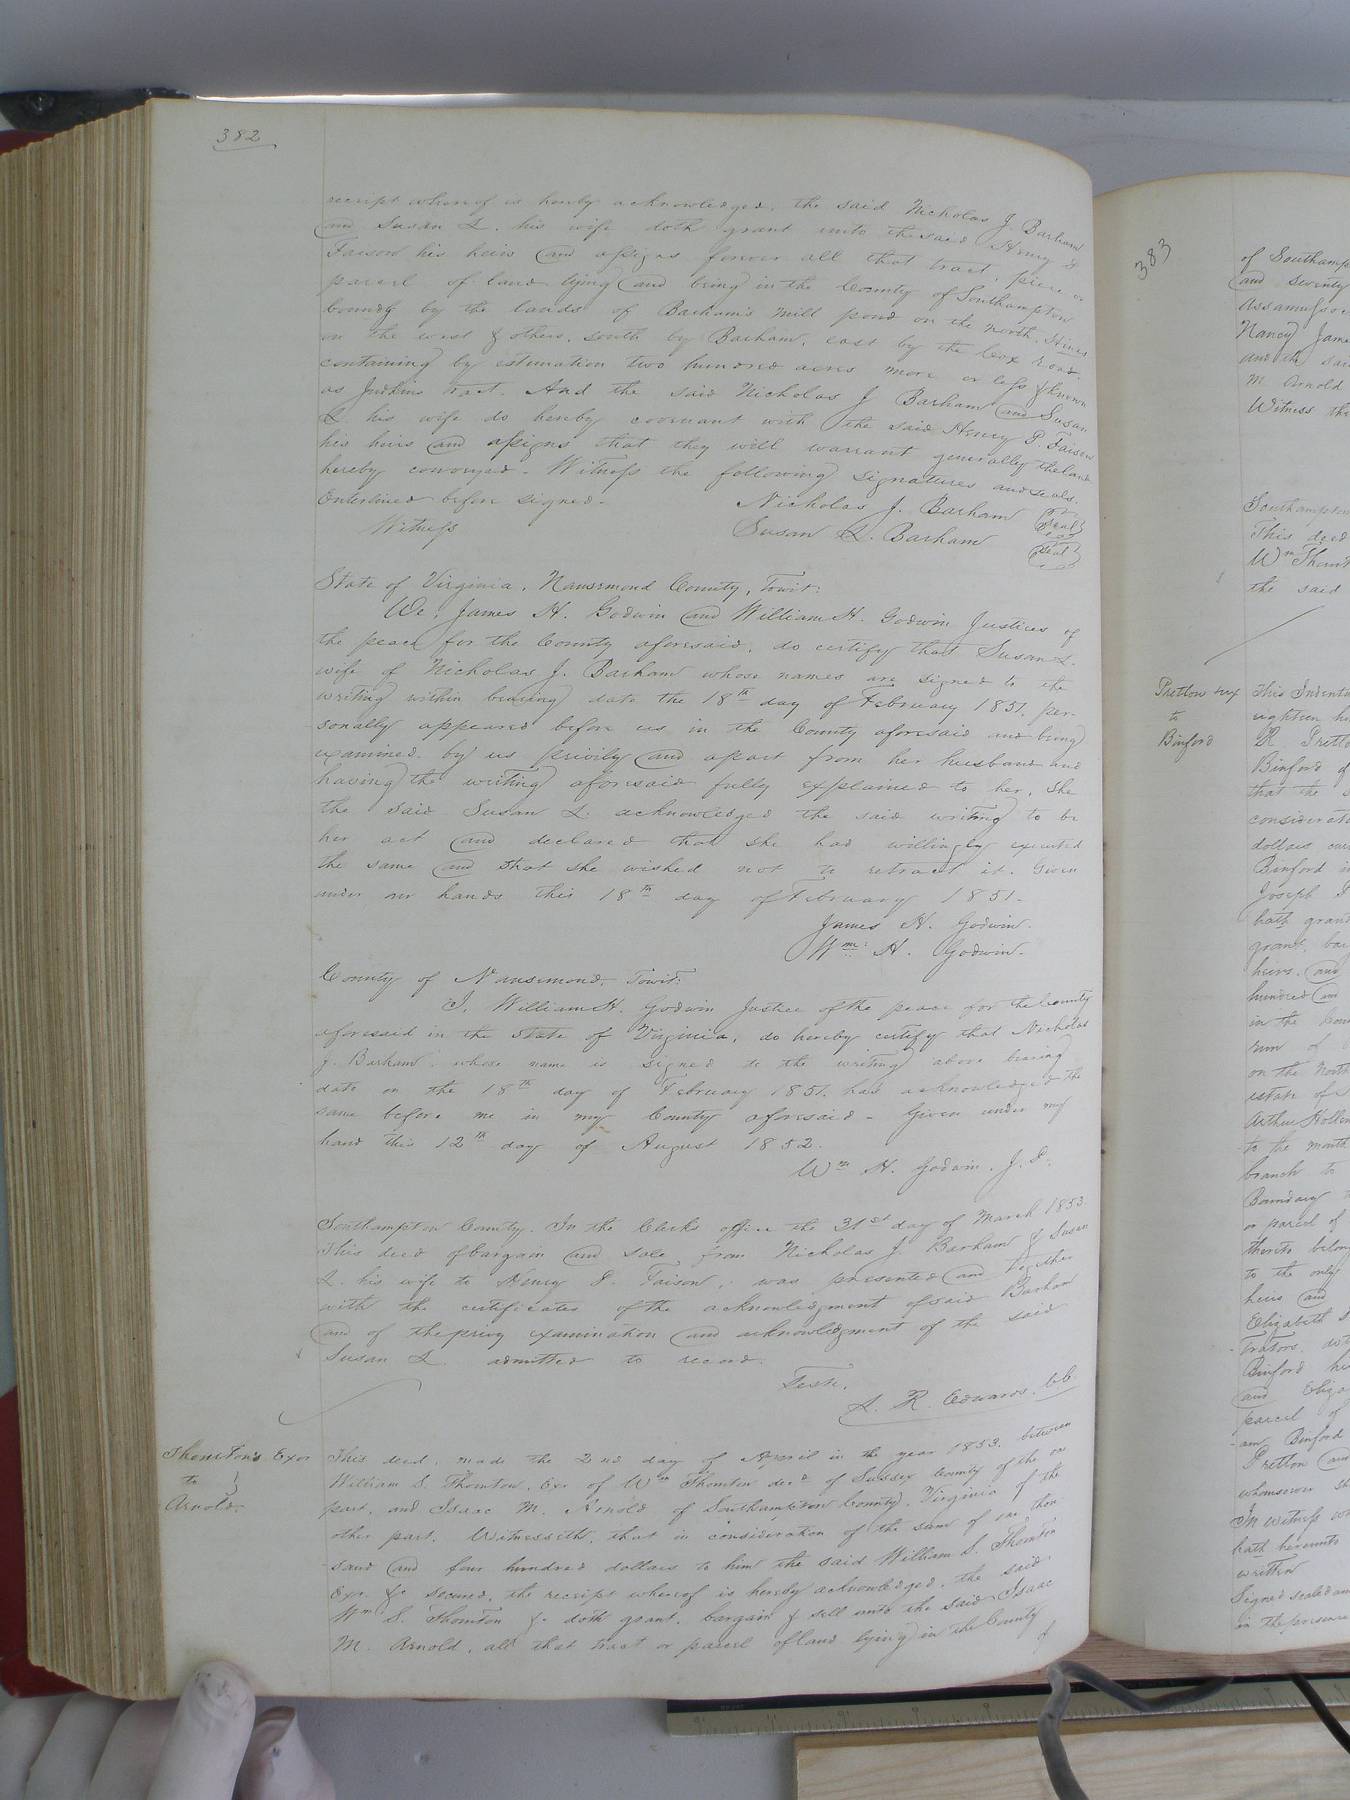 382
receipt whereof is hereby acknowledged, the said Nicholas J. Barham
and Susan L. his wife doth grant unto the said Henry P.
Faison his heirs and assigns forever all that tract, piece or
parcel of land lying and being in the County of Southampton
boundg by the lands of Barham's Mill pond on the north, Hines
on the west & others, south by Barham, east by the Cox road.
containing by estimation two hundred acres more or less & known
as Judkins tract. And the said Nicholas J Barham and Susan
L. his wife do hereby covenant with the said Henry P. Faison
his heirs and assigns that they will warrant generally the land
hereby conveyed. Witness the following signatures and seals.
Enterlined before signed.
Nicholas J. Barham {Seal}
Witness
Susan L. Barham {Seal}
State of Virginia, Nansemond County, Towit:
We, James H. Godwin and William H. Godwin Justices of
the peace for the County aforesaid, do certify that Susan L.
wife of Nicholas J. Barham whose names are signed to the
writing within bearing date the 18th day of February 1851. per-
sonally appeared before us in the County aforesaid and being
examined by us privily and apart from her husband and
having the writing aforesaid fully explained to her, she
the said Susan L. acknowledged the said writing to be
her act and declared that she had willingly executed
the same and that she wished not to retract it. Given
under our hands this 18th day of February 1851.
James H. Godwin.
Wm: H. Godwin.
County of Nansemond, Towit:
I, William H. Godwin Justice of the peace for the County
aforesaid in the State of Virginia, do hereby certify that Nicholas
J. Barham, whose name is signed to the writing above bearing
date on the 18th day of February 1851. has acknowledged the
same before me in my County aforesaid - Given under my
hand this 12th day of August 1852.
Wm H. Godwin. J. P.
Southampton County. In the Clerks office the 31st day of March 1853
This deed of bargain and sale from Nicholas J. Barham & Susan
L. his wife to Henry P. Faison, was presented and together
with the certificates of the acknowledgment of said Barham
and of the privy examination and acknowledgment of the said
Susan L. admitted to record.
Teste,
L. R. Edwards. CC
Thornton's Exor
to
Arnold.
This deed, made the 2nd day of April in the year 1853. between
William S. Thornton, Exr of Wm Thornton decd of Sussex County of the on
part, and Isaac M. Arnold of Southampton County, Virginia of the
other part. Witnesseth, that in consideration of the sum of one thou
-sand and four hundred dollars to him the said William S. Thornton
Exr. &c secured, the receipt whereof is hereby acknowledged, the said
Wm S. Thornton &c doth grant, bargain & sell unto the said Isaac
M. Arnold, all that tract or parcel of land lying in the County
of
383
of Southamp
and seventy
Assamusso
Nancy Jame
and the sai
M Arnold
Witness the
Southampton
This deed
Wm Thornt
the said
Pretlow & ux
to
Binford
This Indentu
eighteen hu
R Pretlo
Binford of
that the s
considerati
dollars cur
Binford in
Joseph P
hath grant
grant, bar
heirs, and
hundred an
in the Coun
run of
on the North
estate of
Arthur Hollem
to the mouth
branch to
Boundary
or parcel of
thereto belon
to the only
heirs and
Elizabeth
-trators, do
Binford he
and Eliza
parcel of
-am Binford
Pretlow an
whomsoever sh
In witness wh
hath hereunto
written
Signed sealed an
in the presence